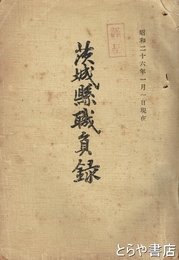 昭和二十六年一月一日現在
茨城縣職員録
とらや書店